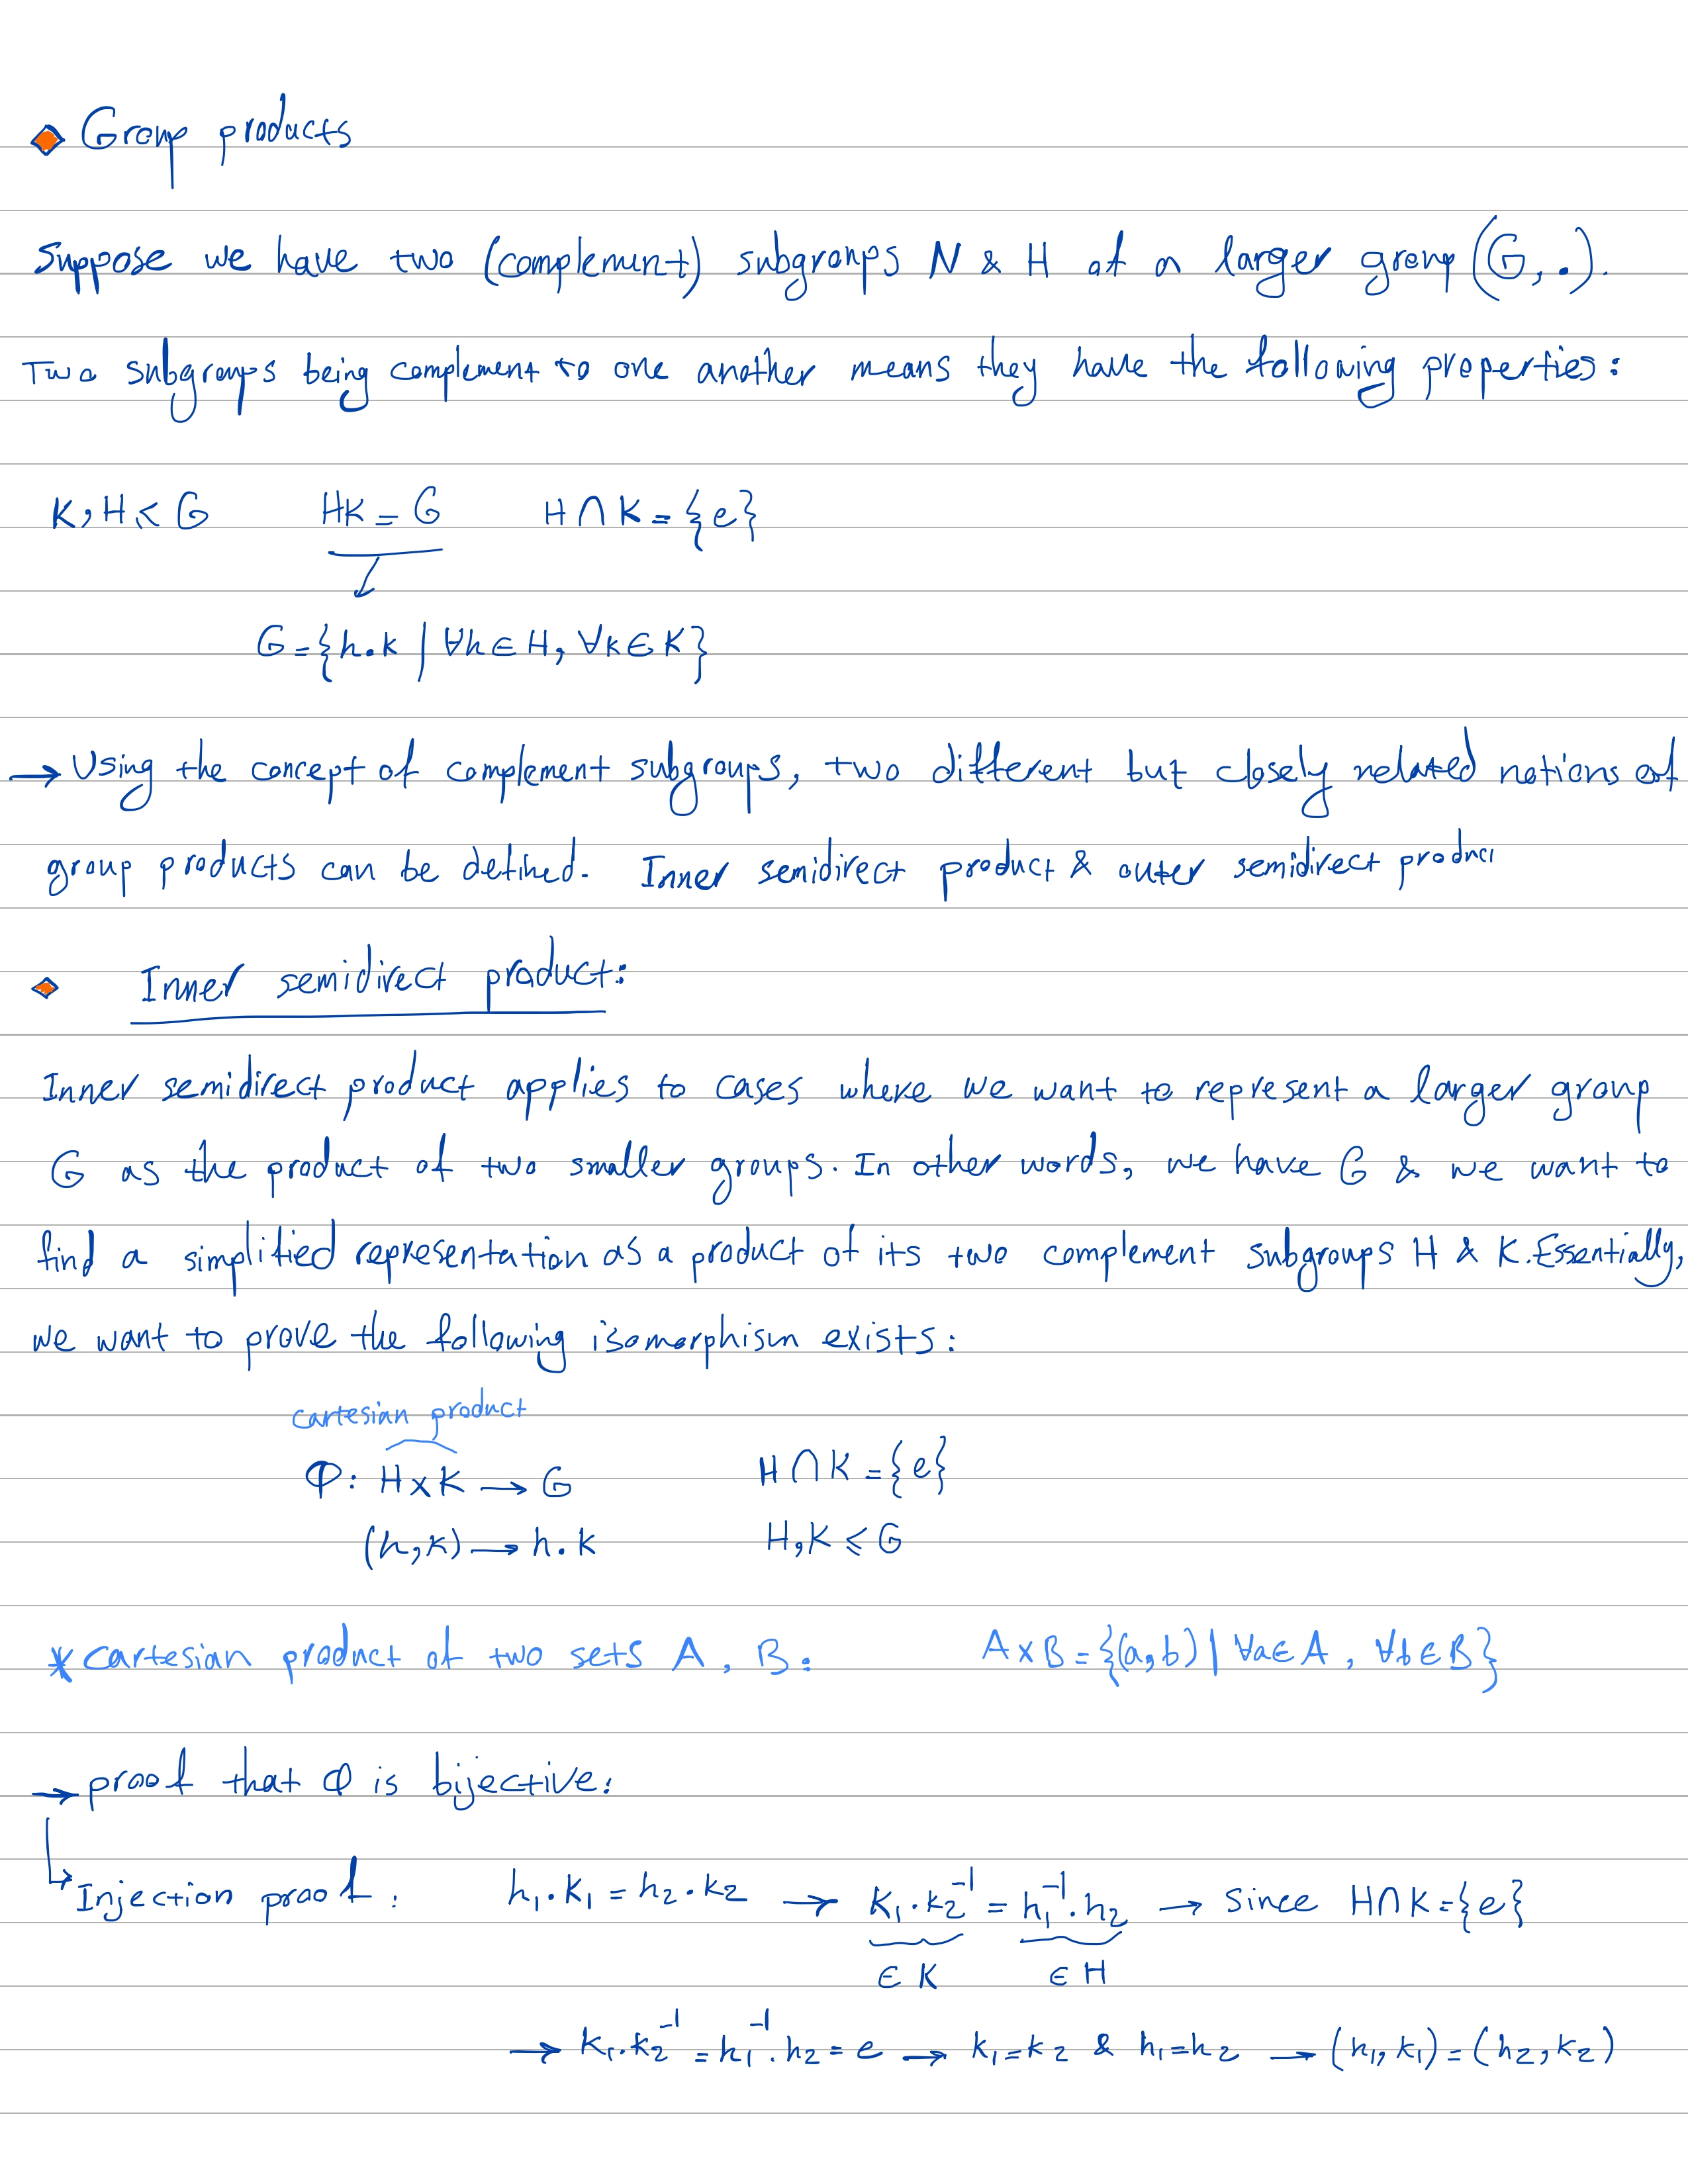 Group products
Suppose we have two (complement) subgroups N & H of a larger group (G, .).
Two subgroups being complement to one another means they have the following properties:
K, H < G HK = G H ∩ K = {e}
G = {h.k | ∀h ∈ H, ∀k ∈ K}
→ Using the concept of complement subgroups, two different but closely related notions of
group products can be defined. Inner semidirect product & outer semidirect product
Inner semidirect product:
Inner semidirect product applies to cases where we want to represent a larger group
G as the product of two smaller groups. In other words, we have G & we want to
find a simplified representation as a product of its two complement subgroups H & K. Essentially,
we want to prove the following isomorphism exists:
cartesian product
Φ: H×K → G H ∩ K = {e}
(h,k) → h.k H,K ≤ G
* Cartesian product of two sets A, B: A×B = {(a,b) | ∀a∈A, ∀b∈B}
→ proof that Φ is bijective:
↳ Injection proof: h₁.k₁ = h₂.k₂ → k₁.k₂⁻¹ = h₁⁻¹.h₂ → since H∩K={e}
∈ K ∈ H
→ k₁.k₂⁻¹ = h₁⁻¹.h₂ = e → k₁=k₂ & h₁=h₂ → (h₁,k₁) = (h₂,k₂)